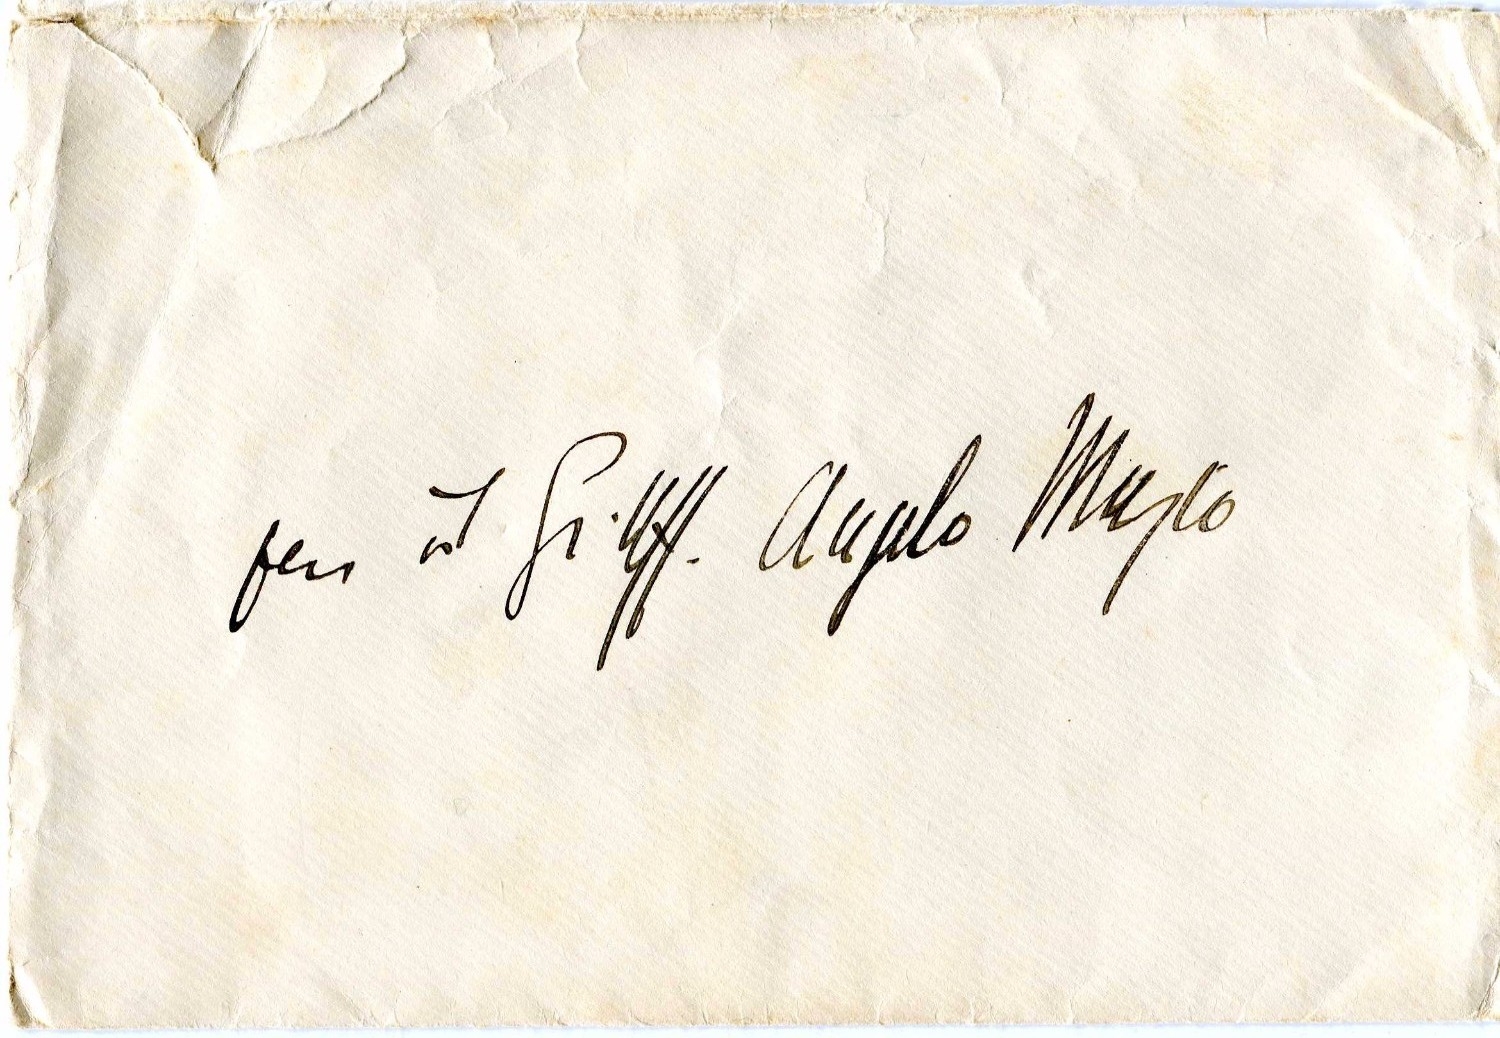 per il Gr. Uff. Angelo Musco